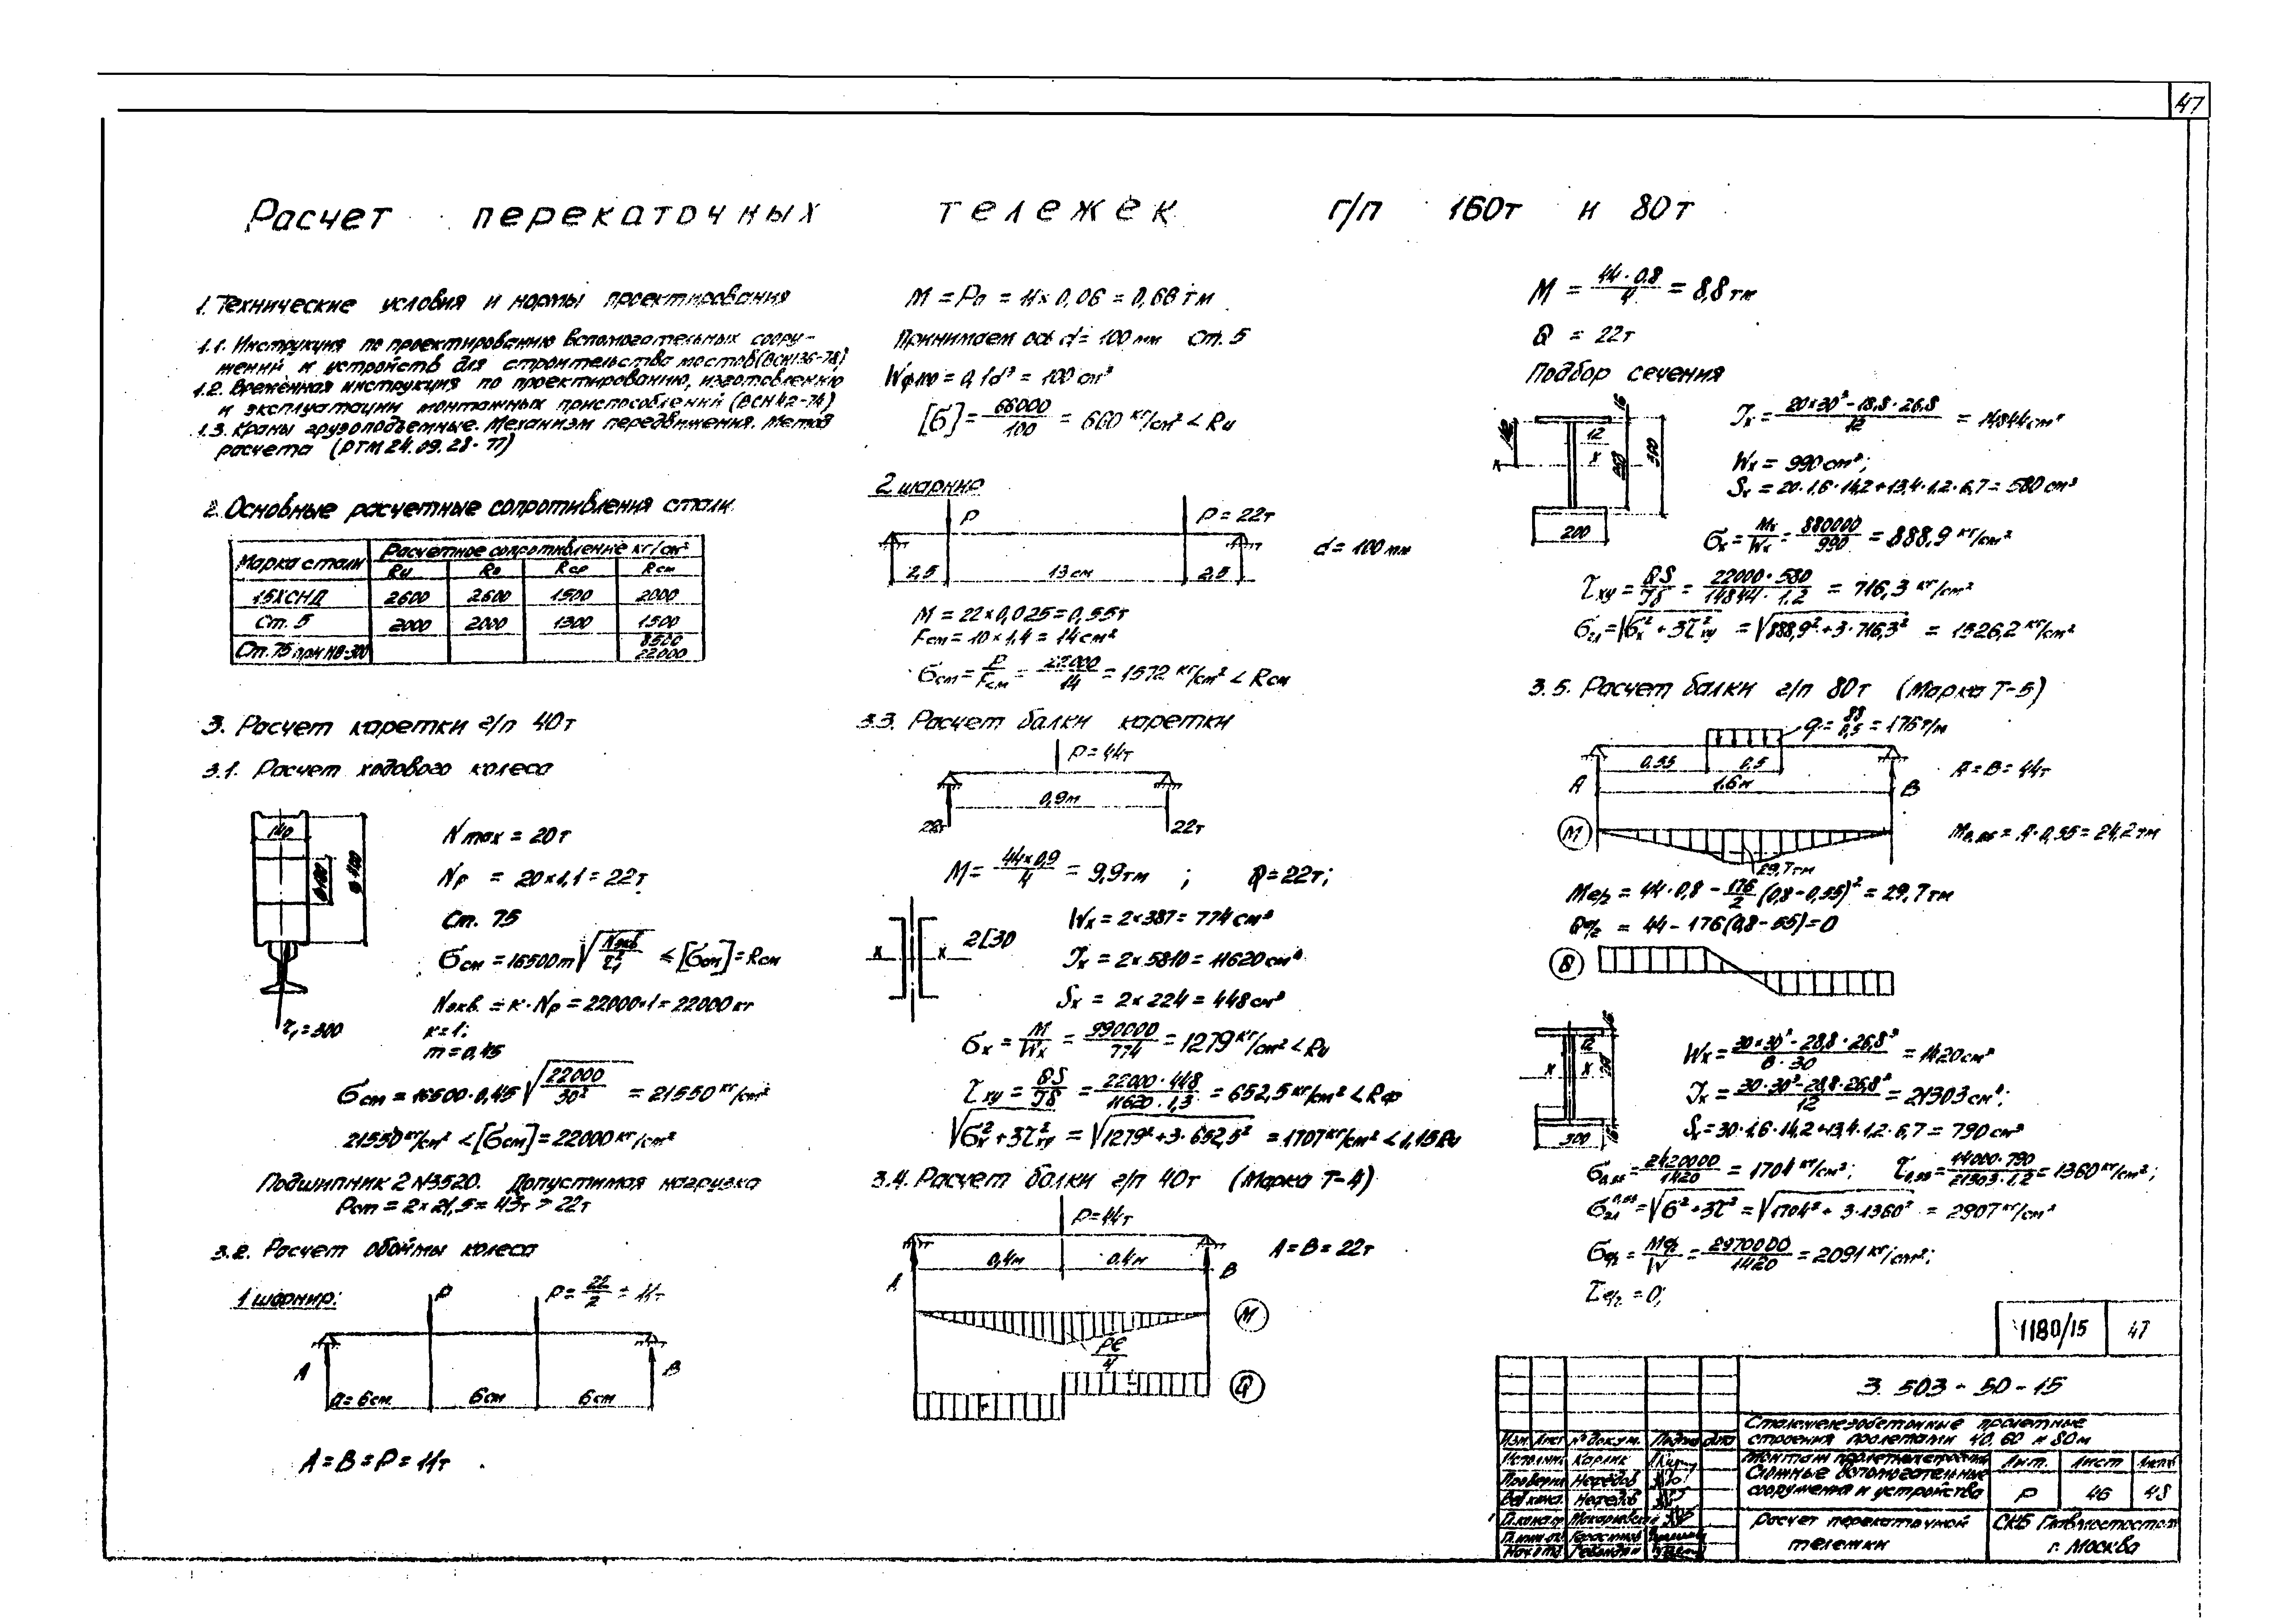 47
Расчет перекаточных тележек г/п 160т и 80т
1. Технические условия и нормы проектирования
1.1. Инструкция по проектированию вспомогательных соору-
жений и устройств для строительства мостов (ВСН136-78)
1.2. Временная инструкция по проектированию, изготовлению
и эксплуатации монтажных приспособлений (ВСН42-74)
1.3. Краны грузоподъемные. Механизм передвижения. Метод
расчета (РТМ 24.09.28-77)
2. Основные расчетные сопротивления стали
Марка стали Расчетное сопротивление кг/см²
Rи Rо Rср Rсм
15ХСНД 2600 2600 1500 2000
Ст. 5 2000 2000 1300 1500
Ст. 75 при НВ-300 8500
22000
3. Расчет каретки г/п 40т
3.1. Расчет ходового колеса
140
Ø400
N max = 20т
Np = 20×1,1 = 22т
Ст. 75
σсм = 16500m √(Nэкв/r₁²) ≤ [σсм] = Rсм
Nэкв. = к·Np = 22000·1 = 22000 кг
к=1;
m=0,45
r₁=300
σсм = 16500·0,45 √(22000/30²) = 21550 кг/см²
21550 кг/см² < [σсм] = 22000 кг/см²
Подшипник 2 N3520. Допустимая нагрузка
Рст = 2×21,5 = 43т > 22т
3.2. Расчет обоймы колеса
1 шарнир:
P P = 22/2 = 11т
A B
a=6см 6см 6см
A=B=P=11т
M = Pa = 11×0,06 = 0,66 тм
Принимаем ось d= 100 мм Ст. 5
Wфлю = 0,1d³ = 100 см³
[σ] = 66000/100 = 660 кг/см² < Rи
2 шарнир
P P=22т
d = 100 мм
2,5 13см 2,5
M = 22×0,025 = 0,55т
Fсм = 10×1,4 = 14см²
σсм = P/Fсм = 22000/14 = 1572 кг/см² < Rсм
3.3. Расчет балки каретки
P=44т
0,9м
22т 22т
M = 44×0,9/4 = 9,9тм ; Q=22т;
Wx = 2×387 = 774 см³
x x 2[30
Jx = 2×5810 = 11620 см⁴
Sx = 2×224 = 448 см³
σx = M/Wx = 990000/774 = 1279 кг/см² < Rи
τxy = QS/Jδ = 22000·448/11620·1,3 = 652,5 кг/см² < Rср
√(σx²+3τ²xy) = √(1279²+3·652,5²) = 1707 кг/см² < 1,15Rи
3.4. Расчет балки г/п 40т (Марка Т-4)
P=44т
0,4м 0,4м A=B=22т
A B
M
Pℓ/4
Q
M = 44·0,8/4 = 8,8тм
Q = 22т
Подбор сечения
16
12
x
300
200
Jx = 20×30³-18,8·26,8/12 = 14844см⁴
Wx = 990 см³;
Sx = 20·1,6·14,2+13,4·1,2·6,7 = 580 см³
σx = Mx/Wx = 880000/990 = 888,9 кг/см²
τxy = QS/Jδ = 22000·580/14844·1,2 = 716,3 кг/см²
σ21 = √(σx²+3τ²xy) = √(888,9²+3·716,3²) = 1526,2 кг/см²
3.5. Расчет балки г/п 80т (Марка Т-5)
q = 88/0,5 = 176т/м
0,55 0,5 A=B=44т
A 1,6м B
M M0,55 = A·0,55 = 24,2 тм
29,7тм
Mℓ/2 = 44·0,8 - 176/2 (0,8-0,55)² = 29,7тм
Qℓ/2 = 44 - 176(0,8-55) = 0
Q
12
x x
300
Wx = 30×30³-28,8·26,8³/6·30 = 1420см³
Jx = 30·30³-28,8·26,8³/12 = 21303 см⁴;
Sx = 30·1,6·14,2+13,4·1,2·6,7 = 790 см³
σ0,55 = 2420000/1420 = 1704 кг/см²; τ0,55 = 44000·790/21303·1,2 = 1360 кг/см²;
σ21 0,55 = √(σ²+3τ²) = √(1704²+3·1360²) = 2907 кг/см²
σℓ/2 = Mℓ/2/W = 2970000/1420 = 2091 кг/см²;
τℓ/2 = 0;
1180/15 47
3.503-50-15
Сталежелезобетонные пролетные
строения пролетами 40, 60 и 80м
Изм. Лист № докум. Подпись Дата
Исполнил Карлик
Проверил Нефёдов
Нефёдов
Монтаж пролетных строений
Сложные вспомогательные
сооружения и устройства
Лит. Лист Листов
Р 46 48
Расчет перекаточной
тележки
СКБ Главмостостроя
г. Москва